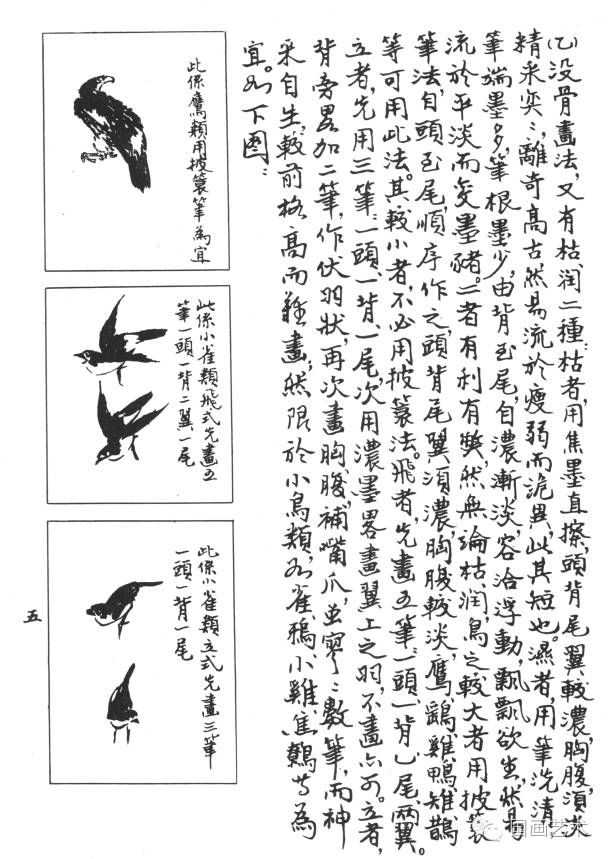 (乙)没骨畫法，又有枯、润二種：枯者，用焦墨直擦，頭背尾翼較濃，胸腹須淡
精采奕ミ，離奇高古，然易流於瘦弱而詭異，此其短也。濕者，用筆洗清，
筆端墨多，筆根墨少，由背至尾，自濃漸淡，容洽浮動，飄飄欲生，
流於平淡而変墨豬。二者有利有獘，然無論枯、润，鳥之較大者用披蓑
筆法，自頭至尾順序作之，頭背尾翼須濃，胸腹較淡，鷹、鷄、鴨、雉、鵲
等可用此法。其較小者，不必用披蓑法。飛者，先畫五筆：一頭、一背、一尾、兩翼。
立者，先用三筆：一頭一背、一尾，次用濃墨畧畫翼上之羽，不畫亦可。立者，
背旁畧加二筆，作伏羽狀，再次畫胸、腹，補嘴、爪，虽寥ミ數筆，而神
采自生，較前格高而難畫；然限於小鳥類，如雀、鴉、小雞、鷦鷯等為
宜。如下圖：
此係鷹類用披蓑筆為宜
此係小雀類飛式先畫五
筆一頭一背二翼一尾
此係小雀類立式先畫三筆
一頭一背一尾
五
国画艺术